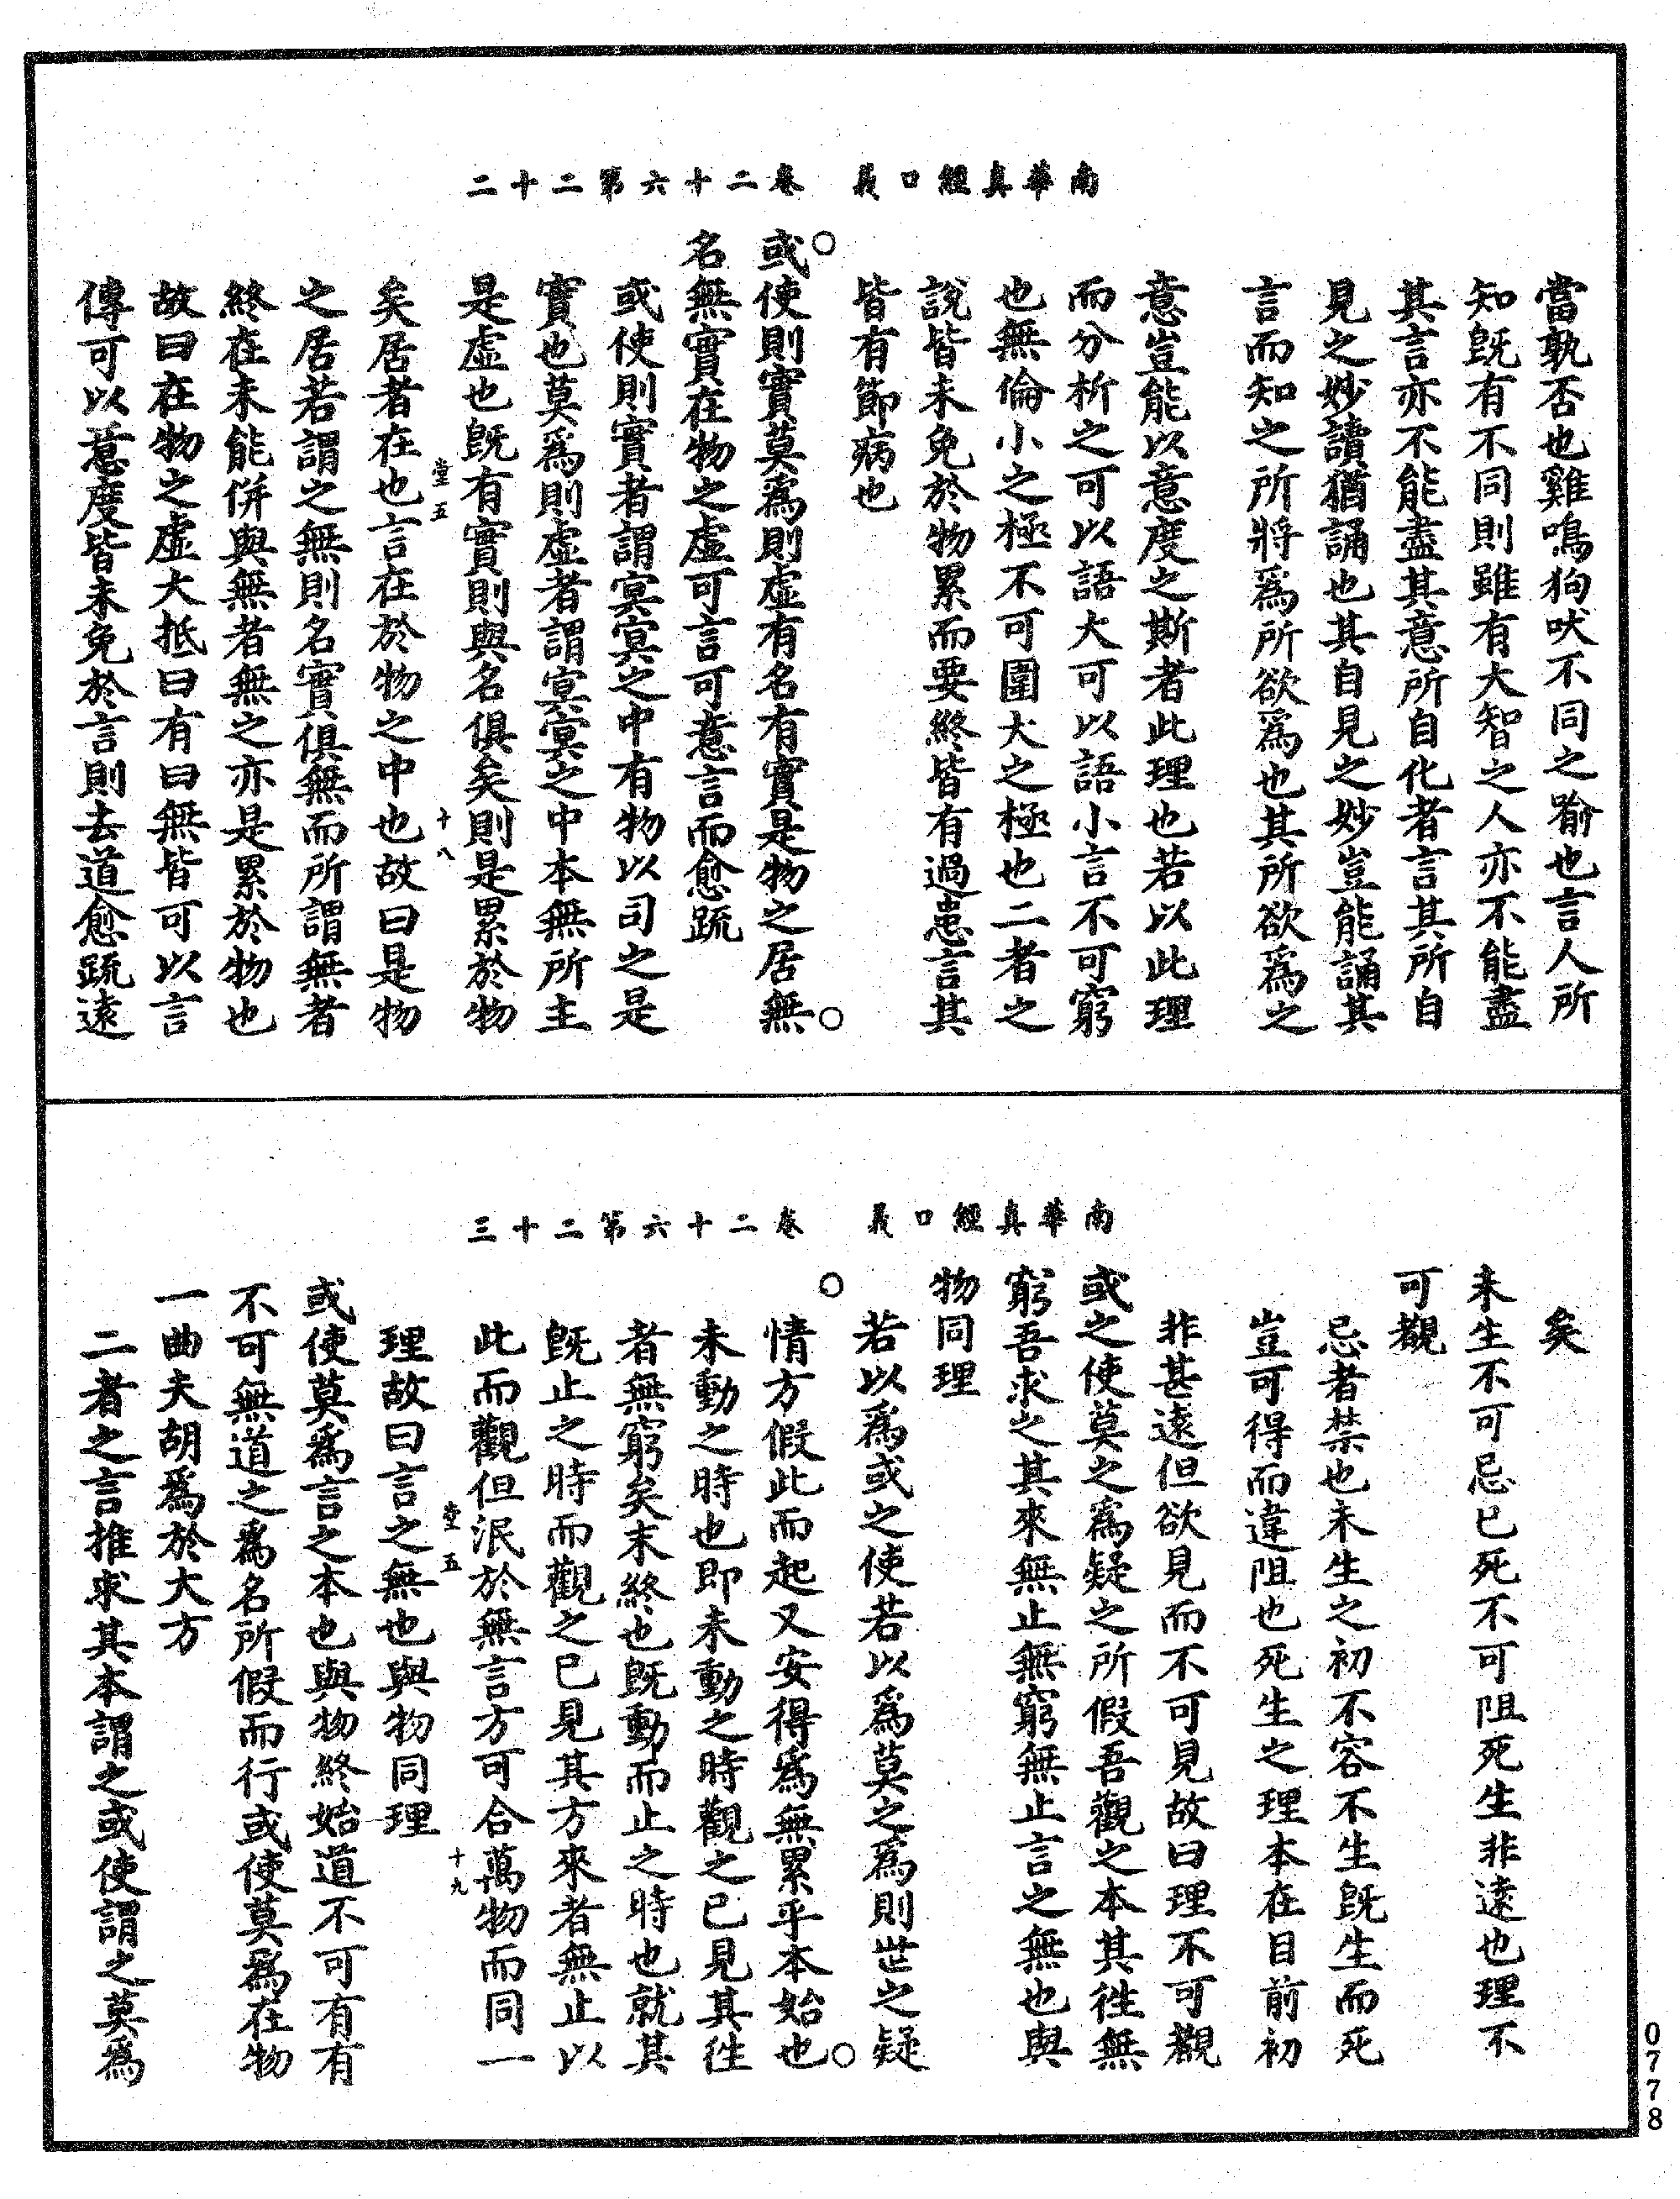 南華真經口義　卷二十六第二十二
當孰否也雞鳴狗吠不同之喻也言人所
知旣有不同則雖有大智之人亦不能盡
其言亦不能盡其意所自化者言其所自
見之妙讀猶誦也其自見之妙豈能誦其
言而知之所將爲所欲爲也其所欲爲之
意豈能以意度之斯者此理也若以此理
而分析之可以語大可以語小言不可窮
也無倫小之極不可圍大之極也二者之
說皆未免於物累而要終皆有過患言其
皆有節病也
或使則實莫爲則虛有名有實是物之居無
名無實在物之虛可言可意言而愈疏
或使則實者謂冥冥之中有物以司之是
實也莫爲則虛者謂冥冥之中本無所主
是虛也旣有實則與名俱矣則是累於物
堂五　十八
矣居者在也言在於物之中也故曰是物
之居若謂之無則名實俱無而所謂無者
終在未能併與無者無之亦是累於物也
故曰在物之虛大抵曰有曰無皆可以言
傳可以意度皆未免於言則去道愈疏遠
南華真經口義　卷二十六第二十三
矣
未生不可忌已死不可阻死生非遠也理不
可觀
忌者禁也未生之初不容不生旣生而死
豈可得而違阻也死生之理本在目前初
非甚遠但欲見而不可見故曰理不可觀
或之使莫之爲疑之所假吾觀之本其往無
窮吾求之其來無止無窮無止言之無也與
物同理
若以爲或之使若以爲莫之爲則世之疑
情方假此而起又安得爲無累乎本始也
未動之時也即未動之時觀之已見其往
者無窮矣末終也旣動而止之時也就其
旣止之時而觀之已見其方來者無止以
此而觀但泯於無言方可合萬物而同一
堂五　十九
理故曰言之無也與物同理
或使莫爲言之本也與物終始道不可有有
不可無道之爲名所假而行或使莫爲在物
一曲夫胡爲於大方
二者之言推求其本謂之或使謂之莫爲
0778